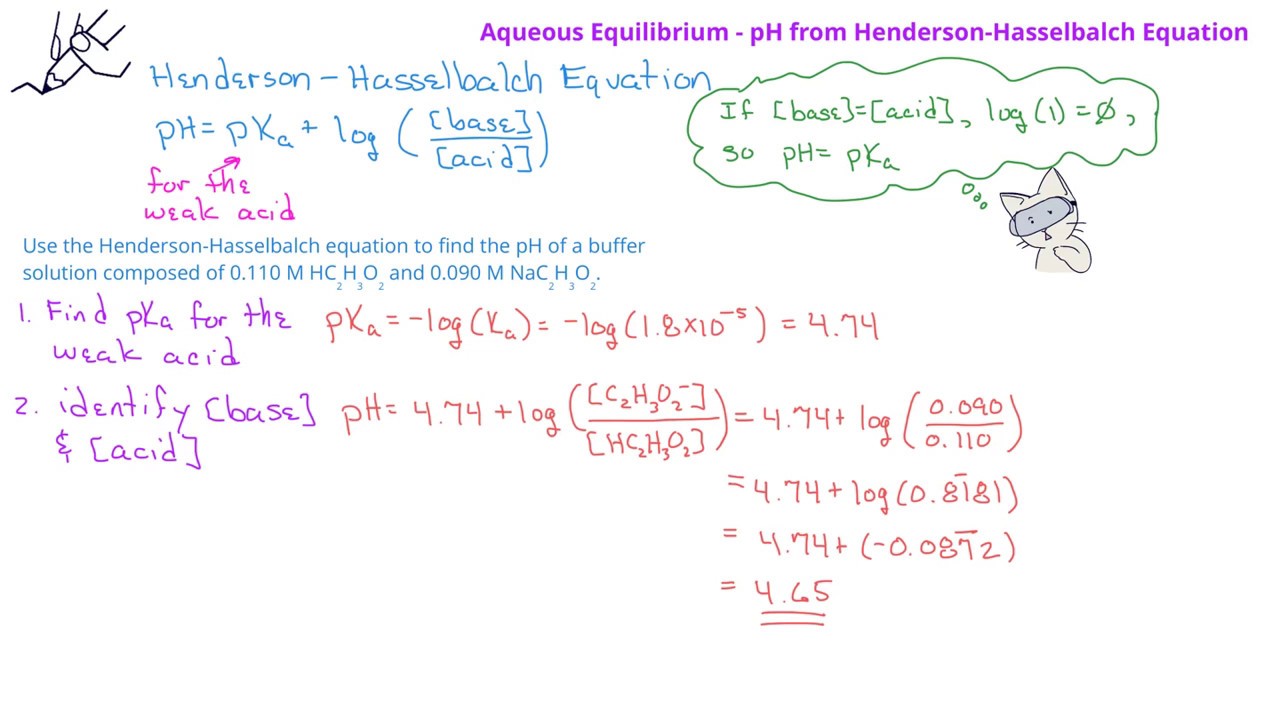 Aqueous Equilibrium - pH from Henderson-Hasselbalch Equation
Henderson-Hasselbalch Equation
pH = pKa + log ([base]/[acid])
for the
weak acid
If [base]=[acid], log(1)=∅,
so pH= pKa
Use the Henderson-Hasselbalch equation to find the pH of a buffer
solution composed of 0.110 M HC₂H₃O₂ and 0.090 M NaC₂H₃O₂.
1. Find pKa for the
weak acid
pKa = -log(Ka) = -log(1.8×10⁻⁵) = 4.74
2. identify [base]
& [acid]
pH= 4.74 + log ([C₂H₃O₂⁻]/[HC₂H₃O₂]) = 4.74 + log (0.090/0.110)
= 4.74 + log(0.81̄81)
= 4.74 + (-0.087̄2)
= 4.65